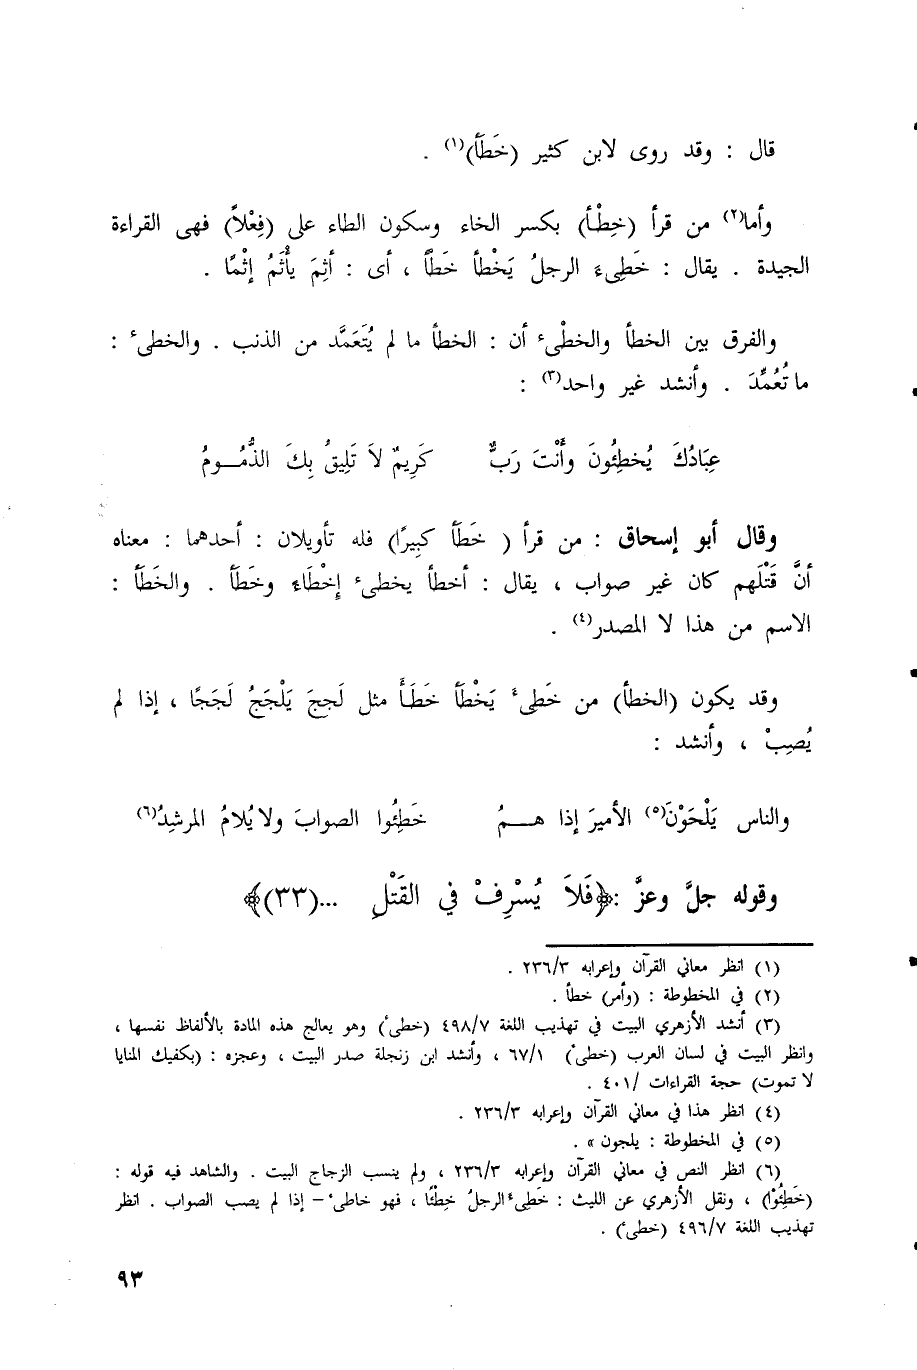 قال : وقد روى لابن كثير (خَطَأ)(١) .
وأما(٢) من قرأ (خِطْأ) بكسر الخاء وسكون الطاء على (فِعْلاً) فهى القراءة
الجيدة . يقال : خَطِىءَ الرجلُ يَخْطأ خَطأً ، أى : أَثِمَ يأْثَمُ إثْمًا .
والفرق بين الخطأ والخطْىء أن : الخطأ ما لم يُتَعَمَّد من الذنب . والخطىء :
ما تُعُمِّدَ . وأنشد غير واحد(٣) :
عِبَادُكَ يُخطِئُونَ وأَنْتَ رَبٌّ كَرِيمٌ لاَ تَلِيقُ بِكَ الذُّمُـومُ
وقال أبو إسحاق : من قرأ ( خَطَأً كبِيرًا) فله تأويلان : أحدهما : معناه
أنَّ قَتْلَهم كان غير صواب ، يقال : أخطأ يخطىء إِخْطَاءً وخَطَأً . والخَطَأ :
الاسم من هذا لا المصدر(٤) .
وقد يكون (الخطأ) من خَطِىءَ يَخْطَأ خَطَأً مثل لَجِجَ يَلْجَجُ لَجَجًا ، إذا لم
يُصِبْ ، وأنشد :
والناس يَلْحَوْنَ(٥) الأميرَ إذا هــمُ خَطِئُوا الصوابَ ولا يُلامُ المرشِدُ(٦)
وقوله جلَّ وعزَّ :﴿فَلاَ يُسْرِفْ في القَتْلِ ...(٣٣)﴾
(١) انظر معاني القرآن وإعرابه ٢٣٦/٣ .
(٢) في المخطوطة : (وأمر) خطأ .
(٣) أنشد الأزهري البيت في تهذيب اللغة ٤٩٨/٧ (خطىء) وهو يعالج هذه المادة بالألفاظ نفسها ،
وانظر البيت في لسان العرب (خطىء) ٦٧/١ ، وأنشد ابن زنجلة صدر البيت ، وعجزه : (بكفيك المنايا
لا تموت) حجة القراءات /٤٠١ .
(٤) انظر هذا في معاني القرآن وإعرابه ٢٣٦/٣ .
(٥) في المخطوطة : يلجون » .
(٦) انظر النص في معاني القرآن وإعرابه ٢٣٦/٣ ، ولم ينسب الزجاج البيت . والشاهد فيه قوله :
(خَطِئُوْا) ، ونقل الأزهري عن الليث : خَطِىءَ الرجلُ خِطْئًا ، فهو خاطىء – إذا لم يصب الصواب . انظر
تهذيب اللغة ٤٩٦/٧ (خطىء) .
٩٣